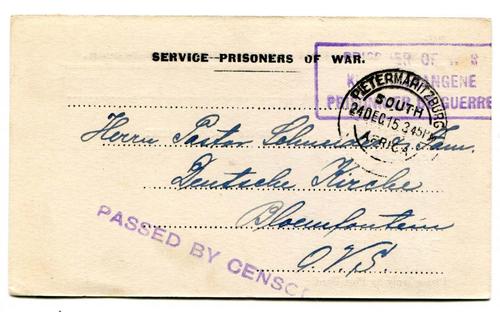 SERVICE--PRISONERS OF WAR.
PRISONER OF
GEFANGENE
GUERRE
PIETERMARITZBURG
SOUTH
24 DEC 15 3 45 PM
AFRICA
Herrn Pastor & Fam.
Deutsche Kirche
Bloemfontein
O.V.S.
PASSED BY CENSO